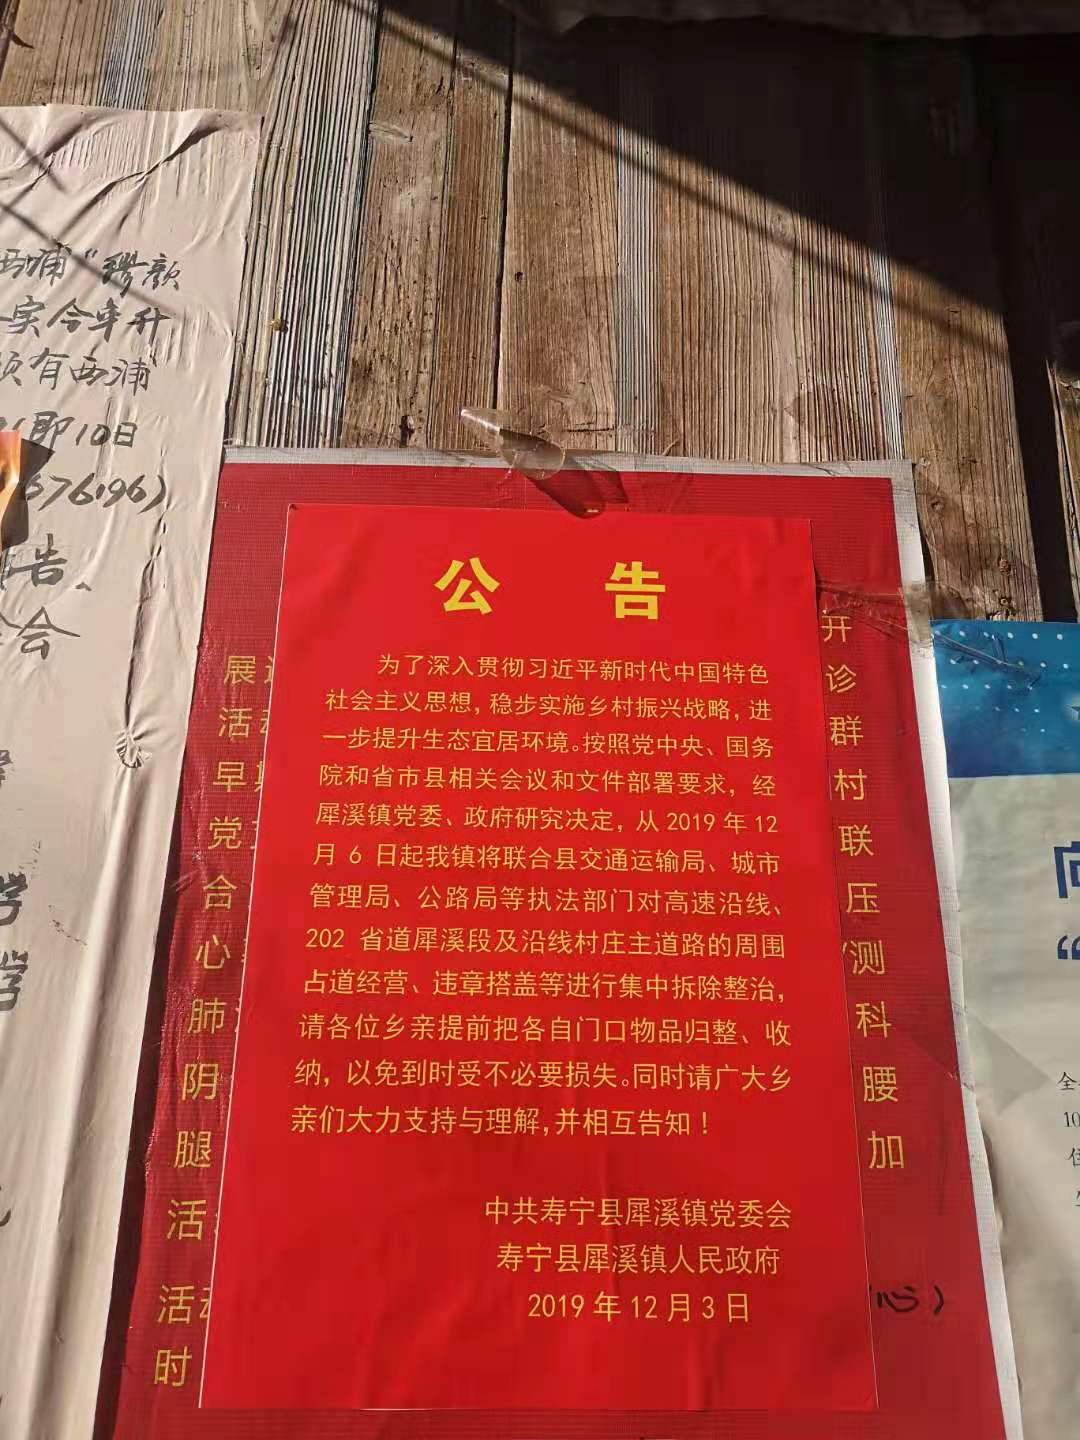 西浦“缪颜
实今年升
须有西浦
即10日
676196)
告、
会
公告
为了深入贯彻习近平新时代中国特色
社会主义思想，稳步实施乡村振兴战略，进
一步提升生态宜居环境。按照党中央、国务
院和省市县相关会议和文件部署要求，经
犀溪镇党委、政府研究决定，从2019年12
月6日起我镇将联合县交通运输局、城市
管理局、公路局等执法部门对高速沿线、
202省道犀溪段及沿线村庄主道路的周围
占道经营、违章搭盖等进行集中拆除整治，
请各位乡亲提前把各自门口物品归整、收
纳，以免到时受不必要损失。同时请广大乡
亲们大力支持与理解，并相互告知！
中共寿宁县犀溪镇党委会
寿宁县犀溪镇人民政府
2019年12月3日
展
活
早
党
合
心
肺
阴
腿
活
活
时
开
诊
群
村
联
压
测
科
腰
加
心）
向
全
10